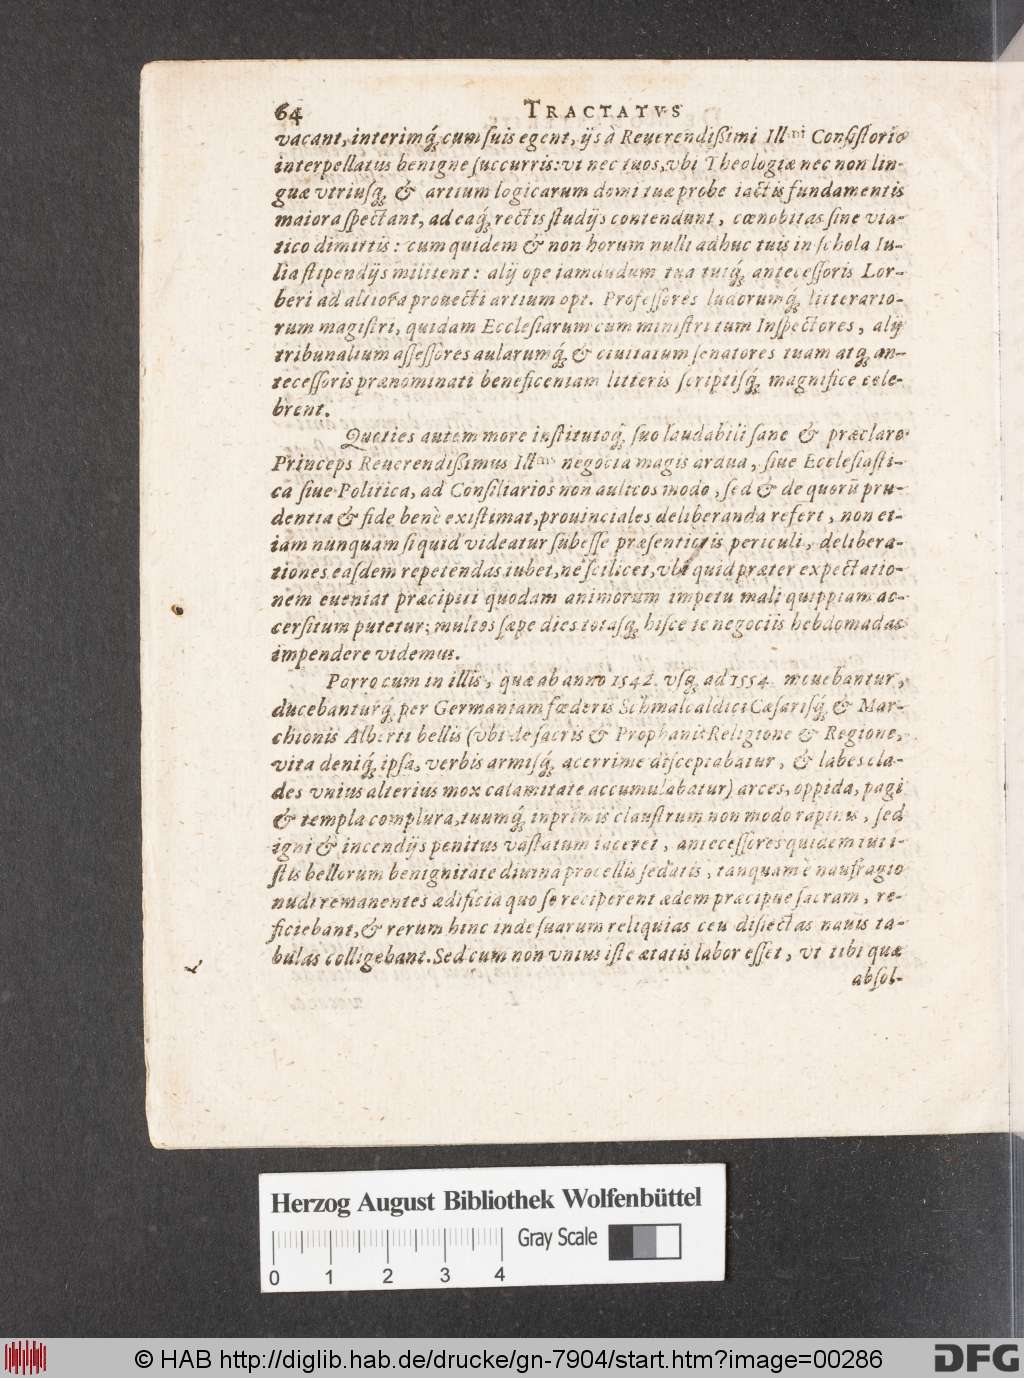 64 TRACTATVS
vacant, interimq́; cum ſuis egent, ijs à Reuerendiſsimi Ill.mi Conſiſtorio
interpellatus benigne ſuccurris: vt nec tuos, vbi Theologiæ nec non lin-
guæ vtriuſq́; & artium logicarum domi tuæ probe iactis fundamentis
maiora ſpectant, ad eaq́; rectis ſtudijs contendunt, cœnobitas ſine via-
tico dimittis: cum quidem & non horum nulli adhuc tuis in ſchola Iu-
lia ſtipendijs militent: alij ope iamdudum tua tuiq́; anteceſſoris Lor-
beri ad altiora prouecti artium opt. Profeſſores ludorumq́; litterario-
rum magiſtri, quidam Eccleſiarum cum miniſtri tum Inſpectores, alij
tribunalium aſſeſſores aularumq́; & ciuitatum ſenatores tuam atq́; an-
teceſſoris prænominati beneficentiam litteris ſcriptiſq́; magnifice cele-
brent.
Quoties autem more inſtitutoq́; ſuo laudabili ſane & præclaro
Princeps Reuerendiſsimus Ill.mus negocia magis ardua, ſiue Eccleſiaſti-
ca ſiue Politica, ad Conſiliarios non aulicos modo, ſed & de quorū pru-
dentia & fide benè exiſtimat, prouinciales deliberanda refert, non et-
iam nunquam ſi quid videatur ſubeſſe præſentioris periculi, delibera-
tiones eaſdem repetendas iubet, ne ſcilicet, vbi quid præter expectatio-
nem eueniat præcipiti quodam animorum impetu mali quippiam ac-
cerſitum putetur; multos ſæpe dies totaſq́; hiſce te negociis hebdomadas
impendere videmus.
Porro cum in illis, quæ ab anno 1542. vſq́; ad 1554. mouebantur,
ducebanturq́; per Germaniam fœderis Schmalcaldici Cæſariſq́; & Mar-
chionis Alberti bellis (vbi de ſacris & Prophanis Religione & Regione,
vita deniq́; ipſa, verbis armiſq́; acerrime diſceptabatur, & labes cla-
des vnius alterius mox calamitate accumulabatur) arces, oppida, pagi
& templa complura, tuumq́; inprimis clauſtrum non modo rapinis, ſed
igni & incendijs penitus vaſtatum iaceret, anteceſſores quidem tui i-
ſtis bellorum benignitate diuina procellis ſedatis, tanquam è naufragio
nudi remanentes ædificia quo ſe reciperent ædem præcipue ſacram, re-
ficiebant, & rerum hinc inde ſuarum reliquias ceu diſiectas nauis ta-
bulas colligebant. Sed cum non vnius iſte ætatis labor eſſet, vt tibi quæ
abſol-
Herzog August Bibliothek Wolfenbüttel
Gray Scale
0 1 2 3 4
© HAB http://diglib.hab.de/drucke/gn-7904/start.htm?image=00286
DFG